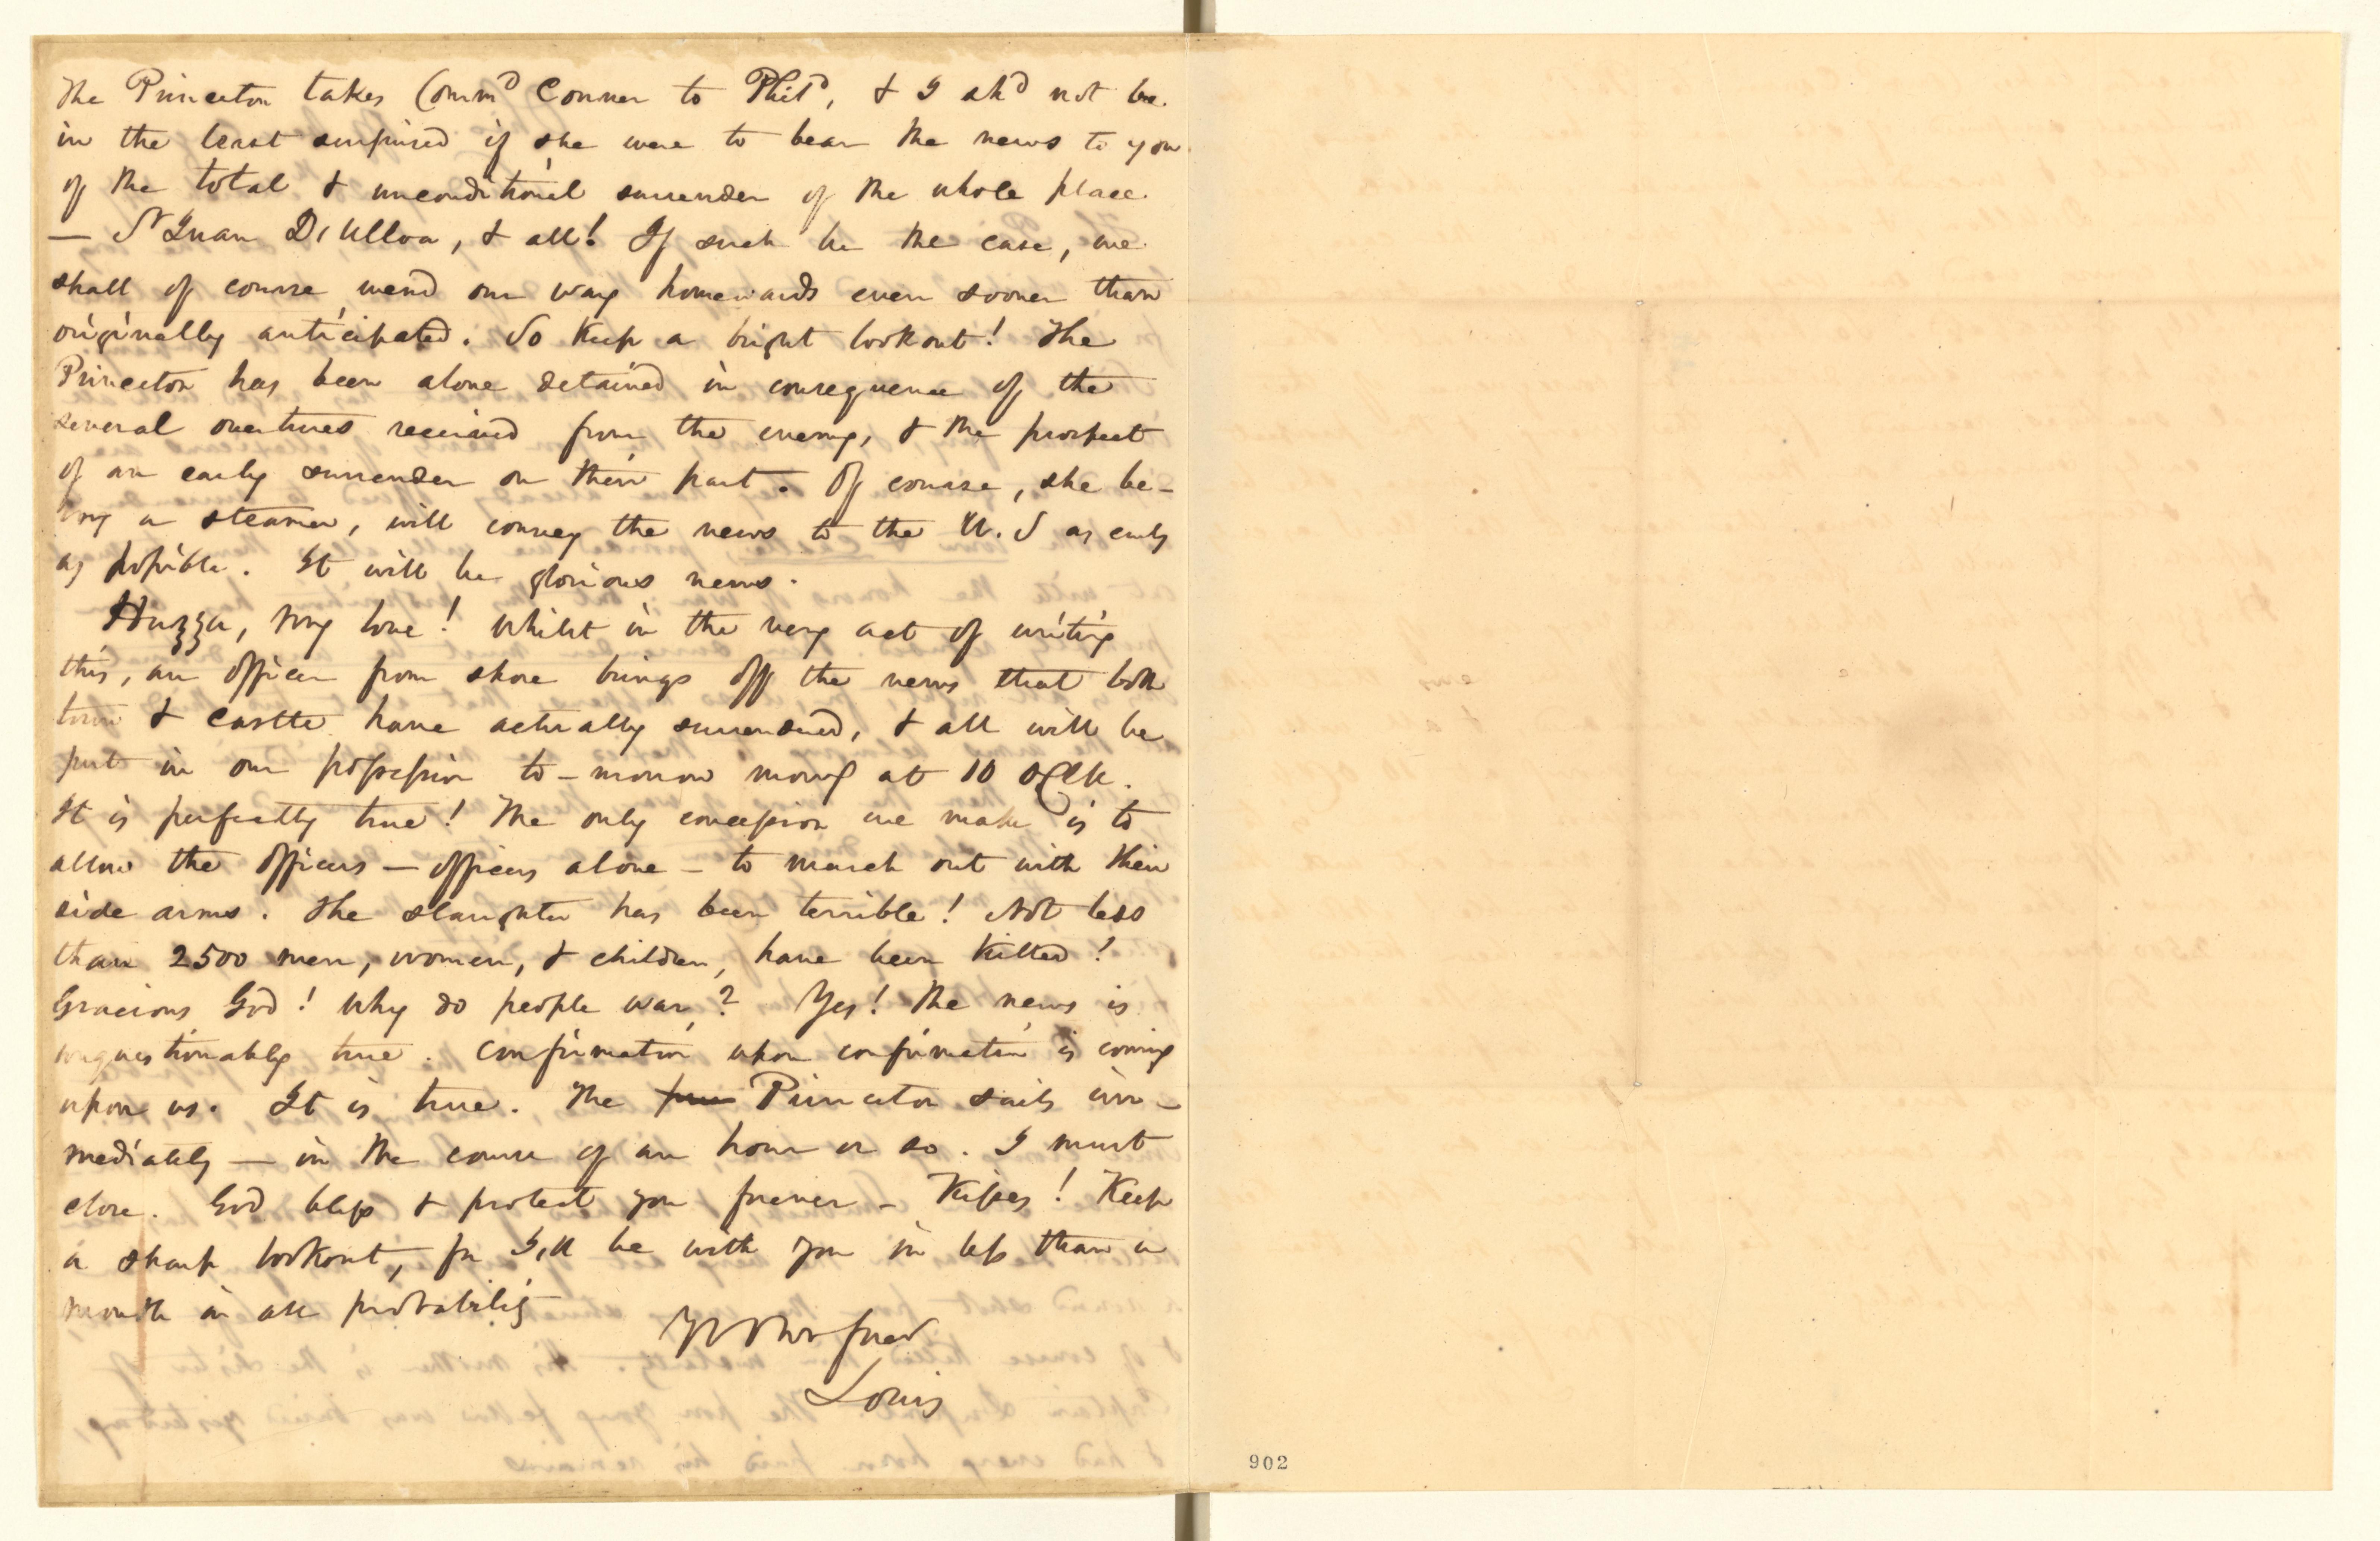 The Princeton takes Comm^d Conner to Phil^d, & I sh^d not be
in the least surprised if she were to bear the news to you
of the total & unconditional surrender of the whole place
— S^t Juan D'Ulloa, & all! If such be the case, we
shall of course wend our way homewards even sooner than
originally anticipated. So keep a bright lookout! The
Princeton has been alone detained in consequence of the
several overtures received from the enemy, & the prospect
of an early surrender on their part. Of course, she be-
ing a steamer, will convey the news to the U. S as early
as possible. It will be glorious news.
Huzza, my love! Whilst in the very act of writing
this, an officer from shore brings off the news that both
town & castle have actually surrendered, & all will be
put in our possession to-morrow morng at 10 oClk.
It is perfectly true! The only concession we make is to
allow the officers — officers alone — to march out with their
side arms. The slaughter has been terrible! Not less
than 2500 men, women, & children, have been killed!
Gracious God! Why do people war? Yes! The news is
unquestionably true. Confirmation upon confirmation is coming
upon us. It is true. The Princeton sails im-
mediately — in the course of an hour or so. I must
close. God bless & protect you forever - Kisses! Keep
a sharp lookout, for I'll be with you in less than a
month in all probability
Louis
902